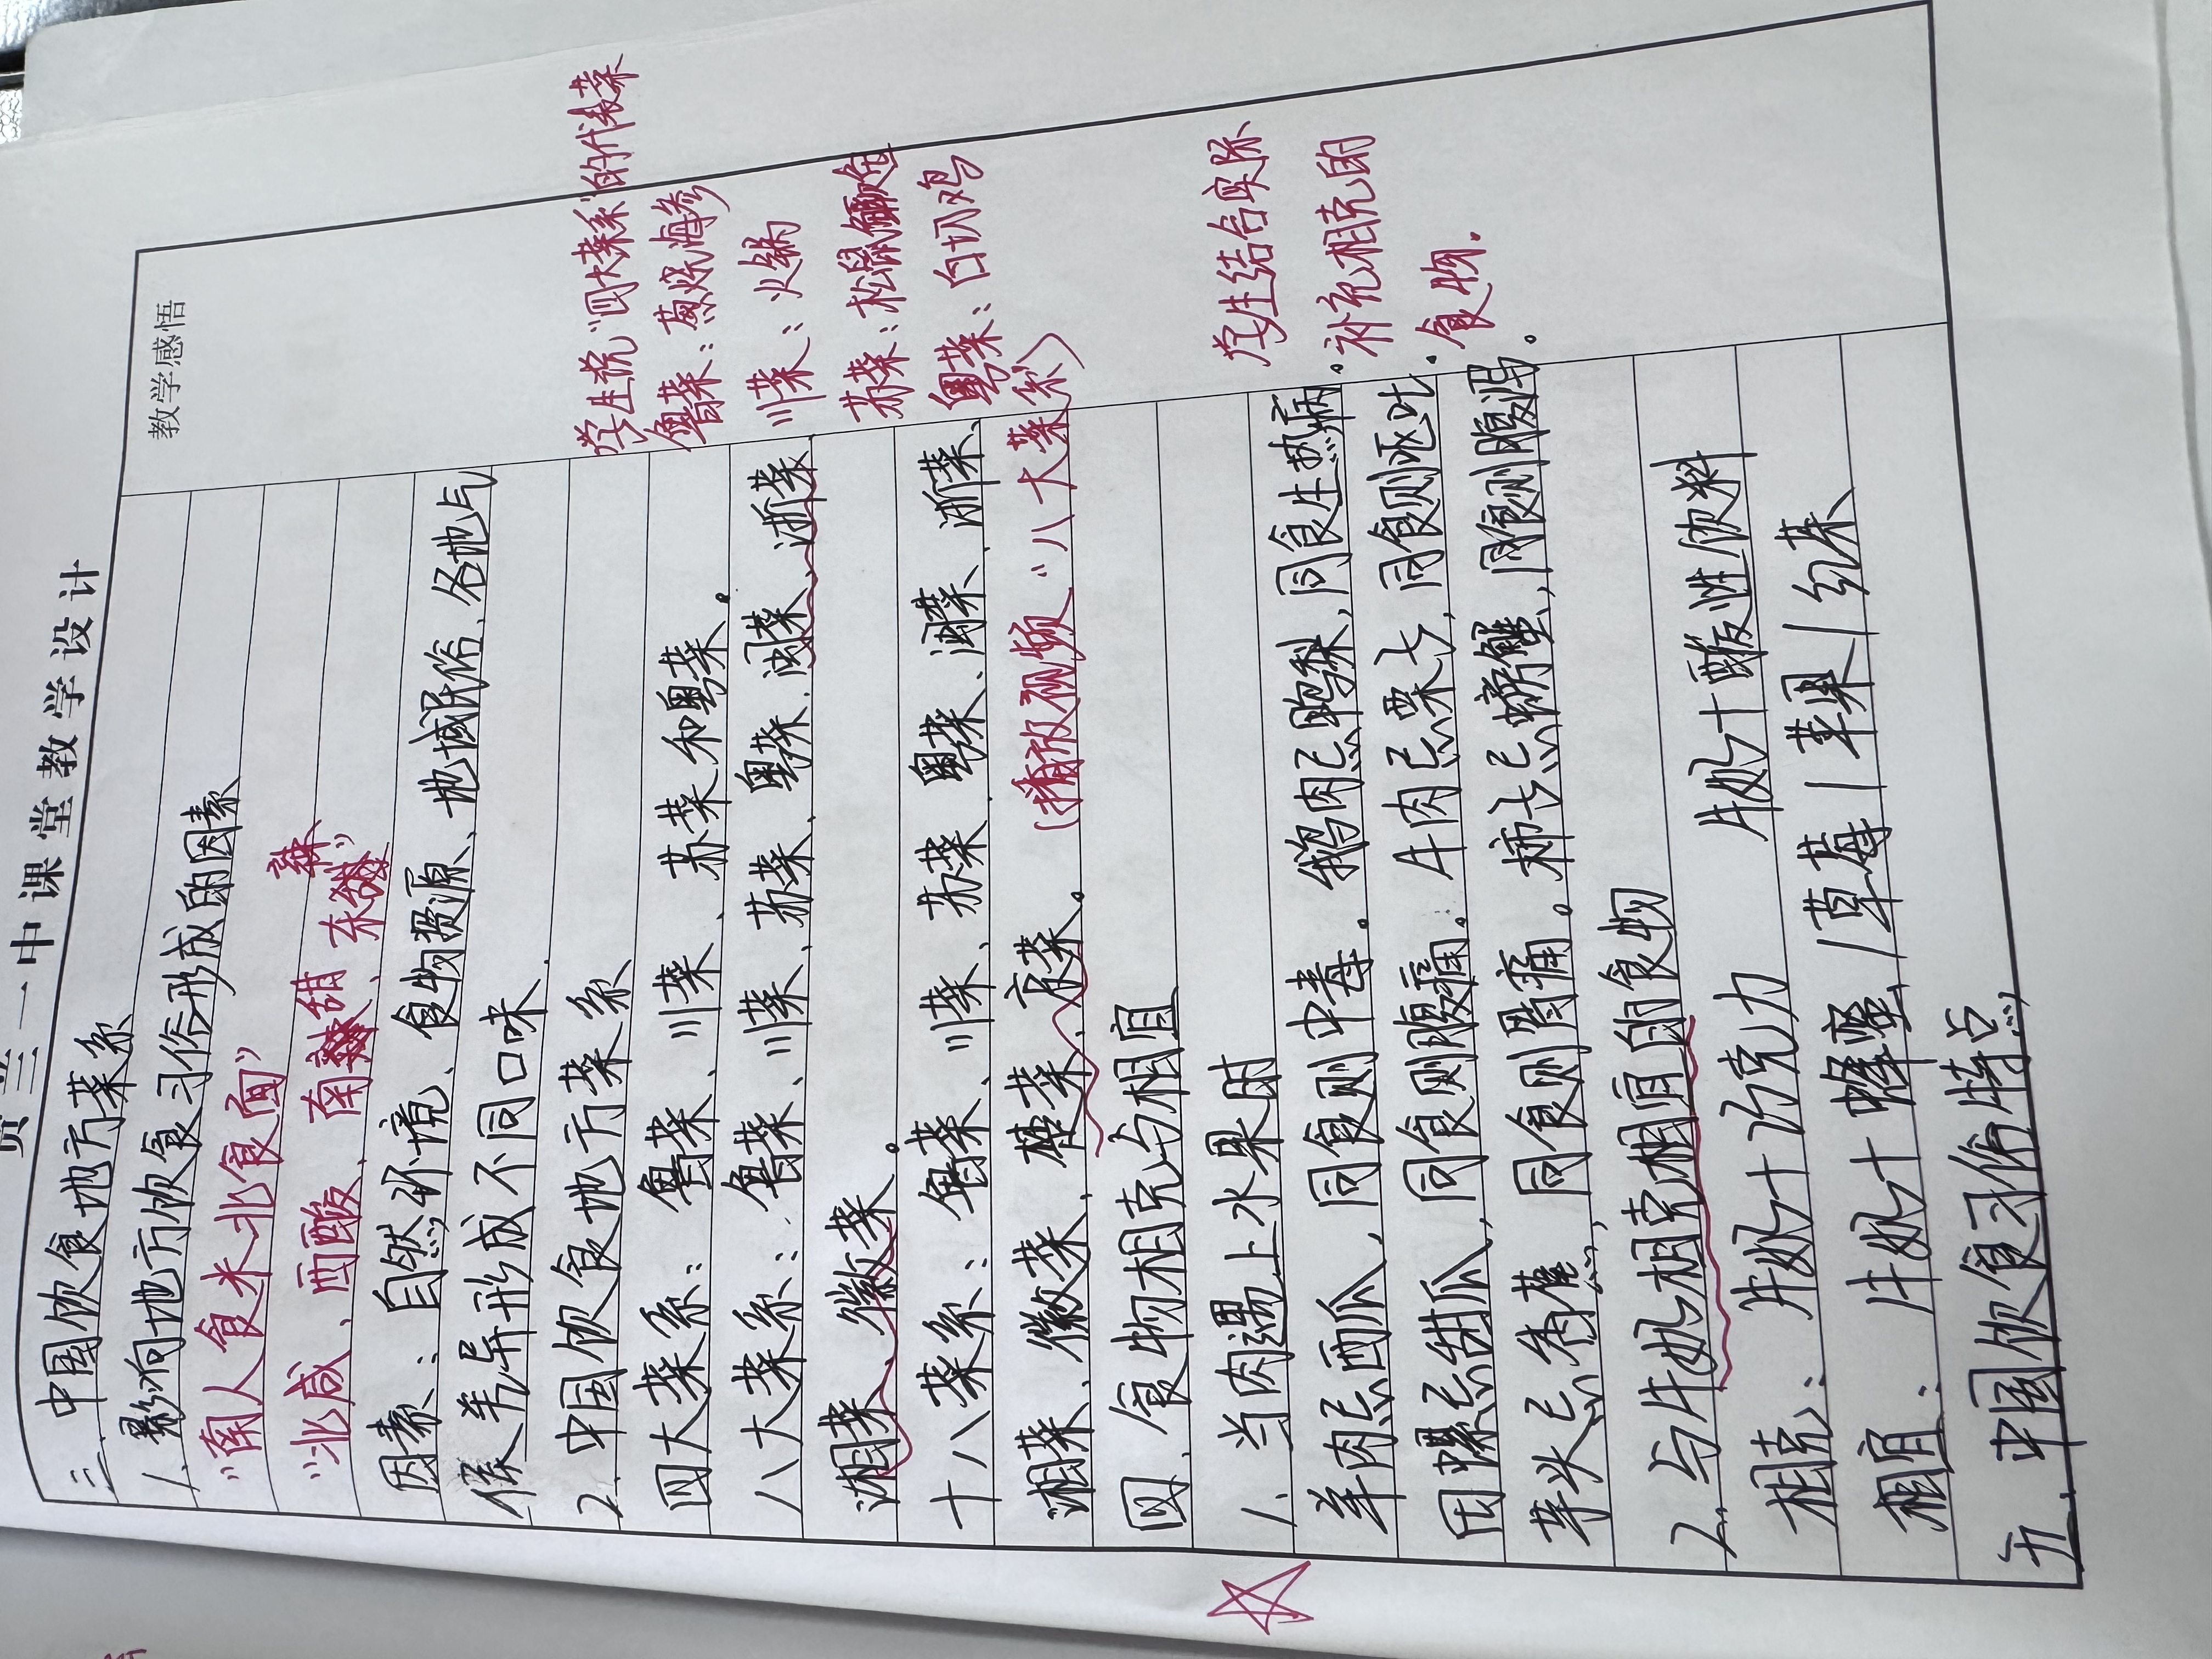 贾兰一中课堂教学设计
教学感悟
三、中国饮食地方菜系
1. 影响地方饮食习俗形成的因素
“南人食米北食面”
“北咸、西酸、南甜 东辣”
因素：自然环境、食物资源、地域民俗、各地气
候差异形成不同口味.
2. 中国饮食地方菜系
四大菜系：鲁菜、川菜、苏菜和粤菜。
八大菜系：鲁菜、川菜、苏菜、粤菜、闽菜、浙菜、
湘菜、徽菜。
十八菜系：鲁菜、川菜、苏菜、粤菜、闽菜、浙菜、
湘菜、徽菜、楚菜、京菜。（播放视频“八大菜系）
四、食物相克与相宜
1. 当肉遇上水果时
羊肉忌西瓜，同食则中毒。鹅肉忌鸭梨，同食生热病。
田螺忌甜瓜，同食则腹痛。牛肉忌栗子，同食则呕吐.
芋头忌香蕉，同食则胃痛。柿子忌螃蟹，同食则腹泻。
2. 与牛奶相克相宜的食物
相克：牛奶+巧克力 牛奶+酸性饮料
相宜：牛奶+蜂蜜/草莓/苹果/红茶
五、中国饮食习俗特点
学生说“四大菜系”的代表菜
鲁菜：葱烧海参
川菜：火锅
苏菜：松鼠鳜鱼
粤菜：白切鸡
学生结合实际
补充相克的
食物.